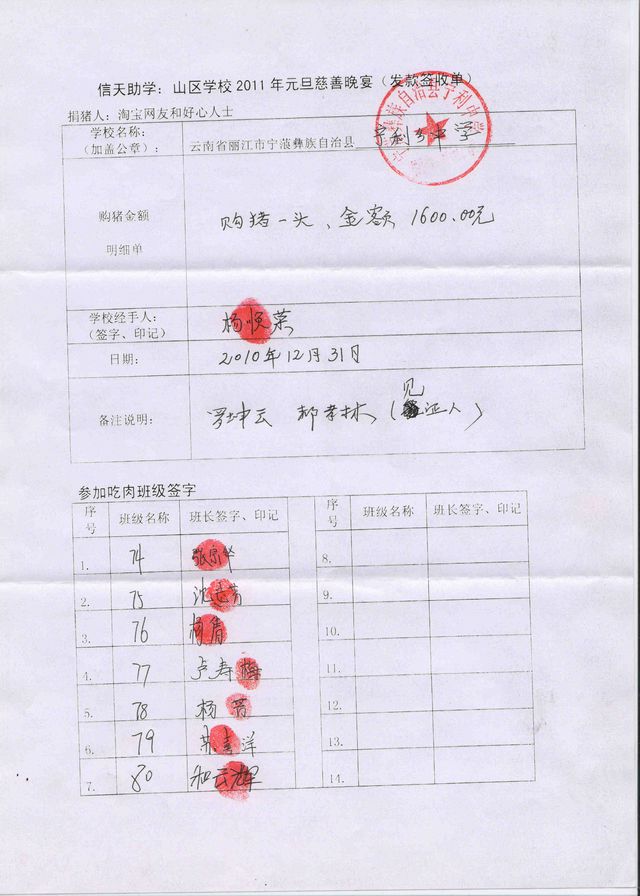 信天助学：山区学校2011年元旦慈善晚宴（发款签收单）
捐猪人：淘宝网友和好心人士
学校名称：
（加盖公章）：
云南省丽江市宁蒗彝族自治县 宁利乡中学
购猪金额
明细单
购猪一头、金额1600.00元
学校经手人：
（签字、印记）
杨顺荣
日期：
2010年12月31日
备注说明：
罗坤云 （见证人）
参加吃肉班级签字
序号 班级名称 班长签字、印记 序号 班级名称 班长签字、印记
1. 74 8.
2. 75 9.
3. 76 杨倩 10.
4. 77 卢寿梅 11.
5. 78 杨 12.
6. 79 13.
7. 80 和云辉 14.